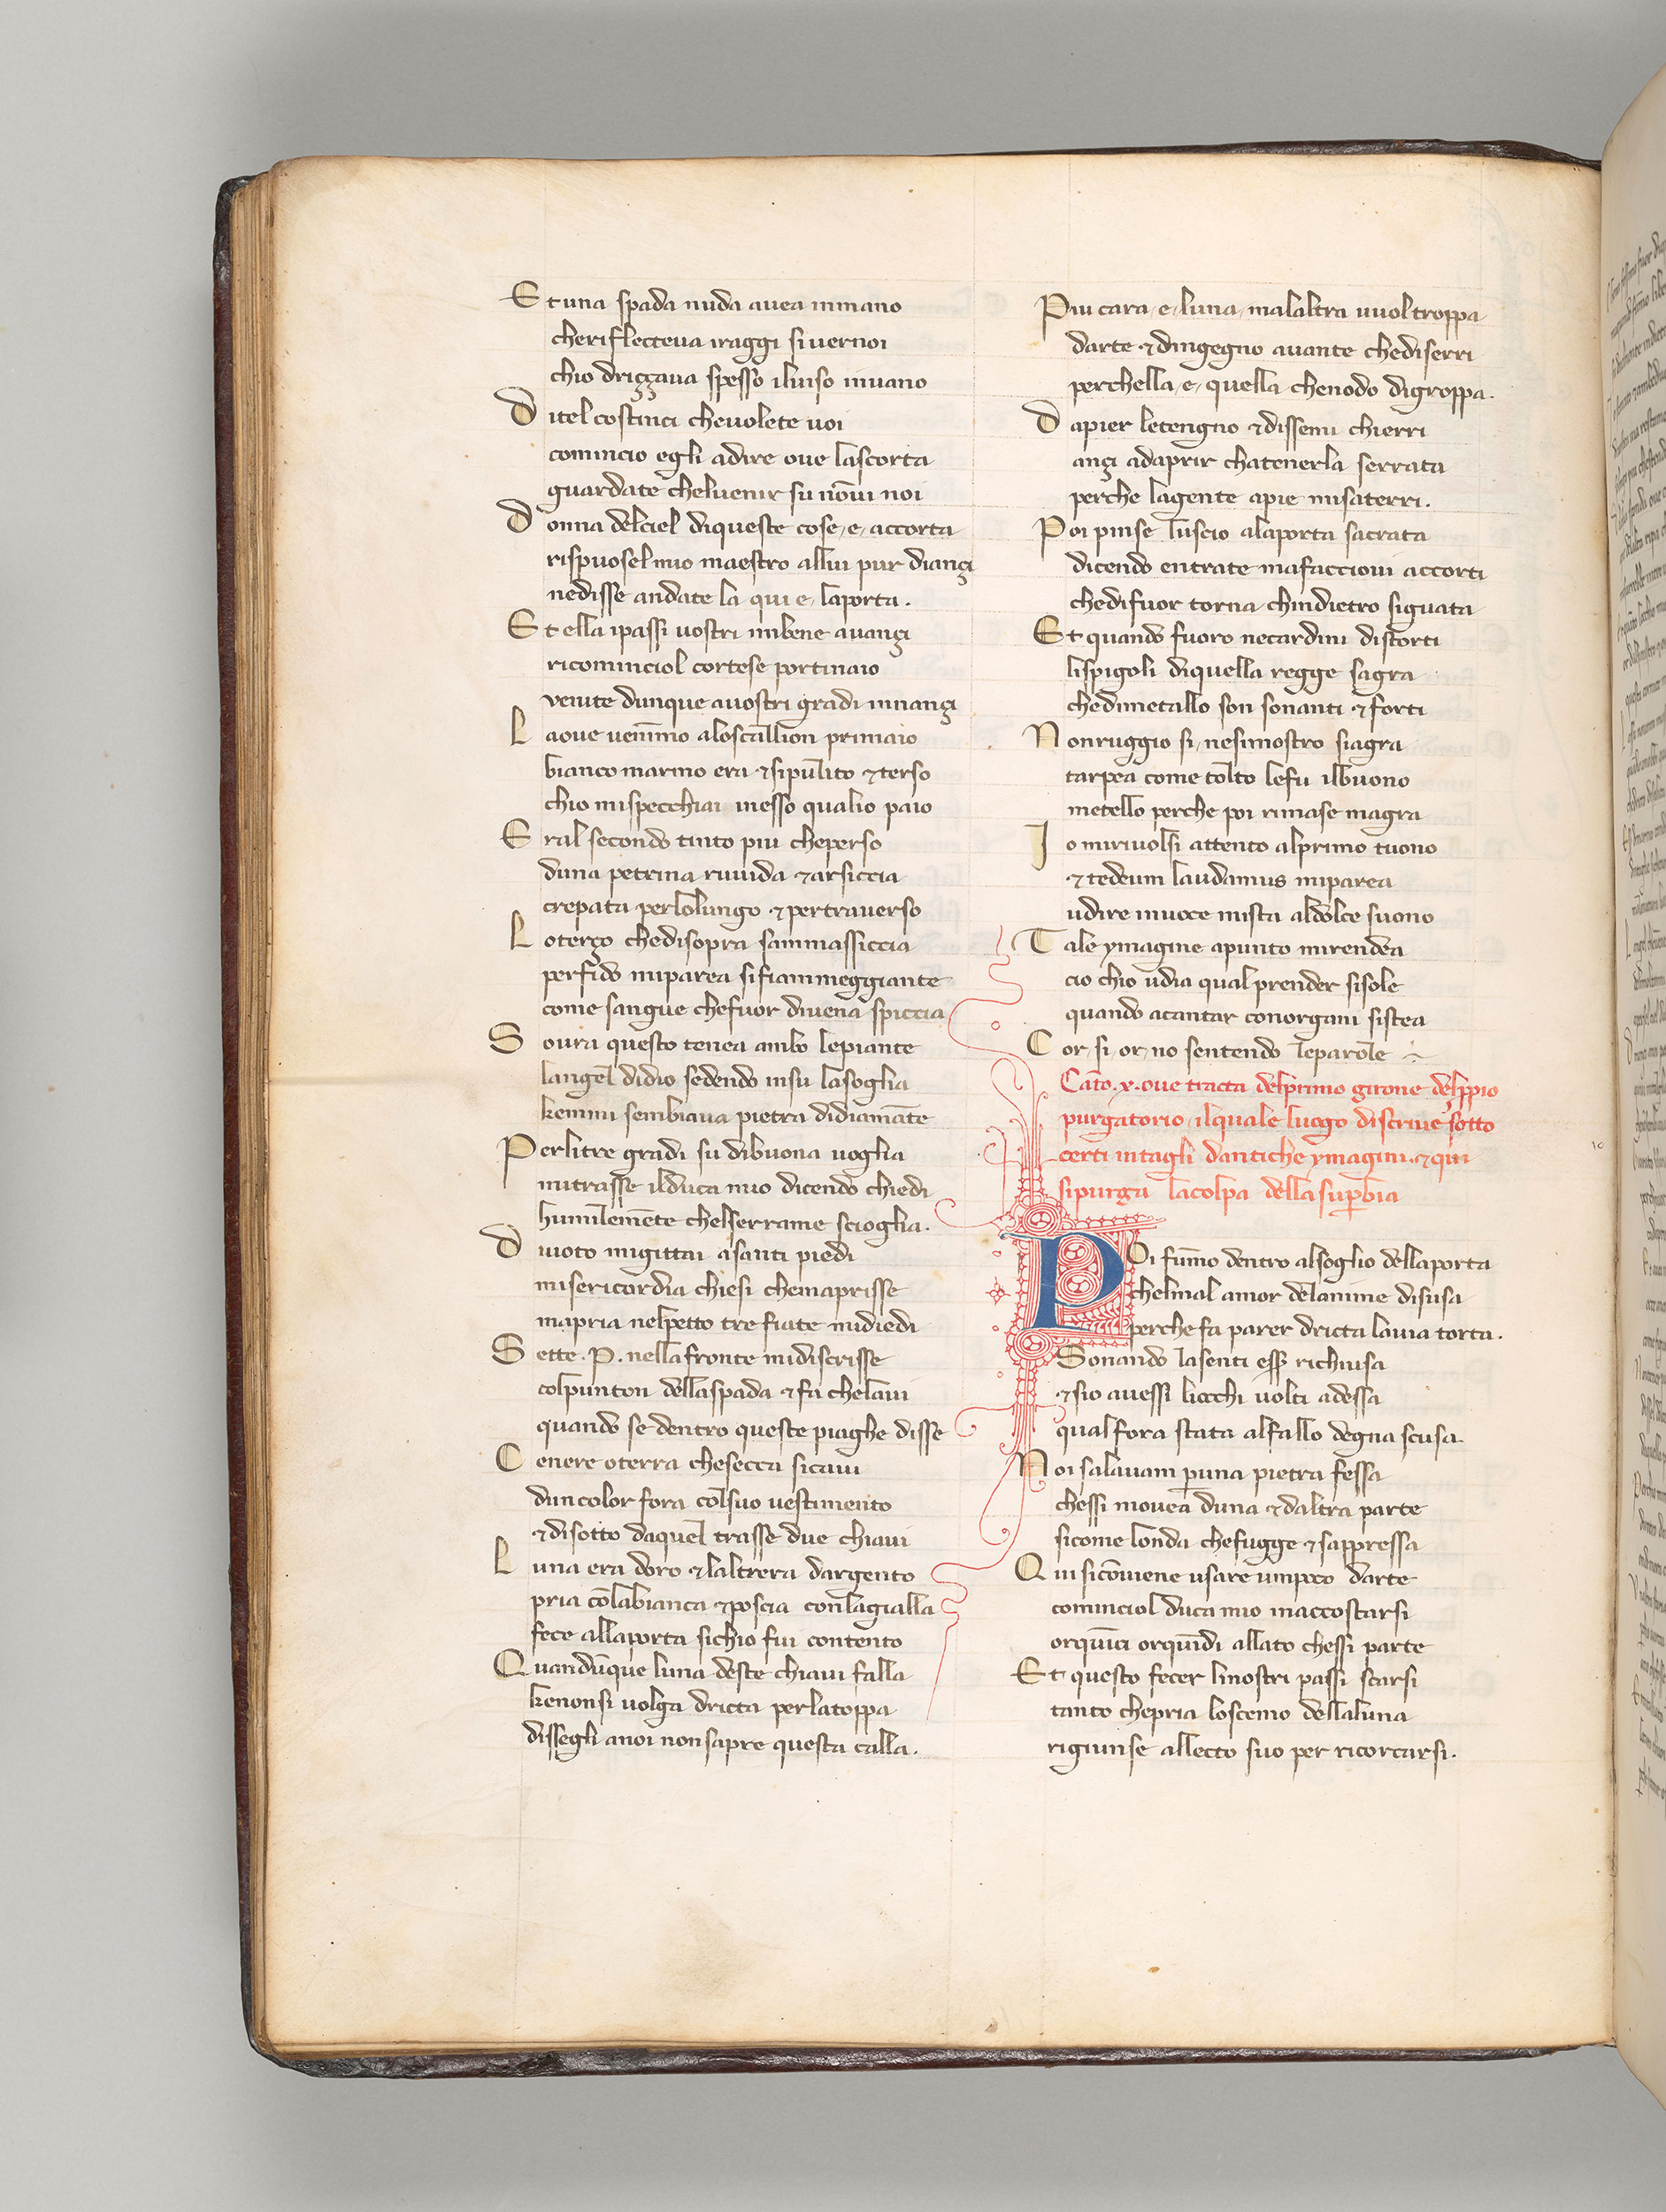 Et una spada nuda avea inmano
cheriflecteva iraggi siver noi
chio driççava spesso ilviso invano
Ditel costinci chevolete voi
comincio egli adire ove lascorta
guardate chelvenir su nōvi noi
Donna delciel diqueste cose e accorta
rispuosel mio maestro allui pur diançi
nedisse andate la qui e laporta.
Et ella ipassi vostri imbene avançi
ricominciol cortese portinaio
venite dunque avostri gradi innançi
Laove venīmo aloscallion primaio
bianco marmo era ⁊ sipulito ⁊ terso
chio mispecchiai inesso qualio paio
Eral secondo tinto piu cheperso
duna petrina ruvida ⁊ arsiccia
crepata perlolungo ⁊ pertraverso
Loterço chedisopra sammassiccia
porfido miparea sifiammeggiante
come sangue chefuor divena spiccia
Sovra questo tenea ambo lepiante
langel didio sedendo insu lasoglia
kemmi sembiava pietra didiamāte
Perlitre gradi su dibuona voglia
mitrasse ilduca mio dicendo chiedi
humilemēte chelserrame scioglia.
Divoto migittai asanti piedi
misericordia chiesi chemaprisse
mapria nelpetto tre fiate midiedi
Sette .P. nellafronte midiscrisse
colpunton dellaspada ⁊ fa chelavi
quando se dentro queste piaghe disse
Cenere oterra chesecca sicavi
duncolor fora colsuo vestimento
⁊ disotto daquel trasse due chiavi
Luna era doro ⁊ laltrera dargento
pria colabianca ⁊ poscia conlagialla
fece allaporta sichio fui contento
Quandūque luna deste chiavi falla
kenonsi volga dricta perlatoppa
dissegli anoi nonsapre questa calla.
Piu cara e luna malaltra vuol troppa
darte ⁊ dingegno avante chediserri
perchella e quella chenodo digroppa.
Dapier letengno ⁊ dissemi chierri
ançi adaprir chatenerla serrata
perche lagente apie misaterri.
Poi pinse luscio alaporta sacrata
dicendo entrate mafacciovi accorti
chedifuor torna chindietro siguata
Et quando fuoro necardini distorti
lispigoli diquella regge sagra
chedimetallo son sonanti ⁊ forti
Nonruggio si nesimostro siagra
tarpea come tolto lefu ilbuono
metello perche poi rimase magra
Io mirivolsi attento alprimo tuono
⁊ tedeum laudamus miparea
udire invoce mista aldolce suono
Tale ymagine apunto mirendea
cio chio udia qual prender sisole
quando acantar conorgani sistea
Cor si or no sentendo leparole
Cāto .x. ove tracta delprimo girone delppio
purgatorio ilquale luogo discrive sotto
certi intagli dantiche ymagini ⁊ qui
sipurga lacolpa dellasuperbia
Poi fūmo dentro alsoglio dellaporta
chelmal amor delanime disusa
perche fa parer dricta lavia torta.
Sonando lasenti esser richiusa
⁊ sio avessi liocchi volti adessa
qual fora stata alfallo degna scusa
Noi salavam p una pietra fessa
chessi movea duna ⁊ daltra parte
sicome londa chefugge ⁊ sappressa
Qui sicōviene usare umpoco darte
cominciol duca mio inaccostarsi
orquīci orquīdi allato chessi parte
Et questo fecer linostri passi scarsi
tanto chepria loscemo dellaluna
rigiunse allecto suo per ricorcarsi.